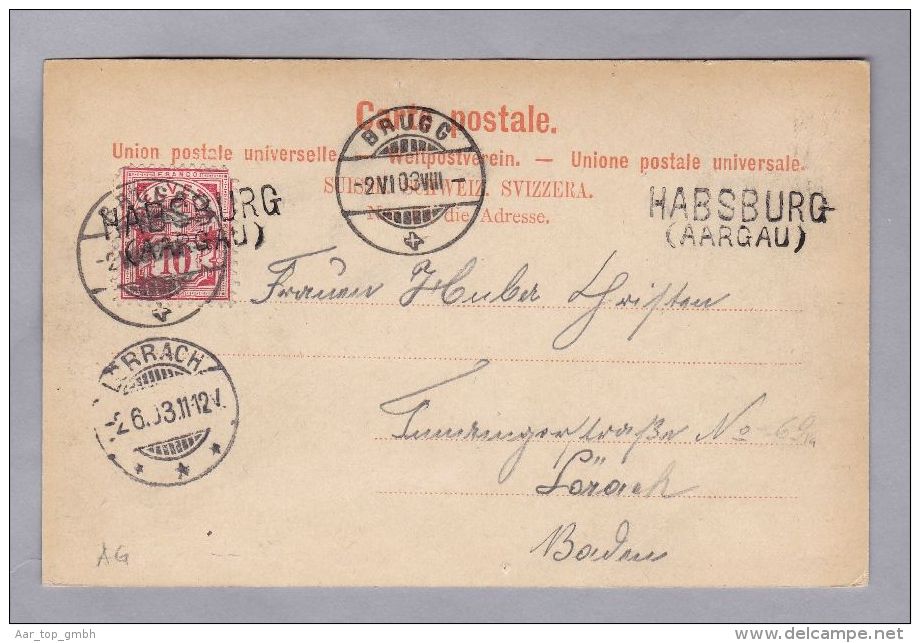 Carte postale.
Union postale universelle. — Weltpostverein. — Unione postale universale.
SUISSE. SCHWEIZ. SVIZZERA.
Nur die Adresse.
BRUGG
-2 VI 03 VIII-
HABSBURG
(AARGAU)
HABSBURG
(AARGAU)
FRANCO
10
Frauen Huber Christen
No 69
Lörach
Baden
LÖRRACH
-2.6.03.11-12V.
AG
Aar_top_gmbh
www.delcampe.net